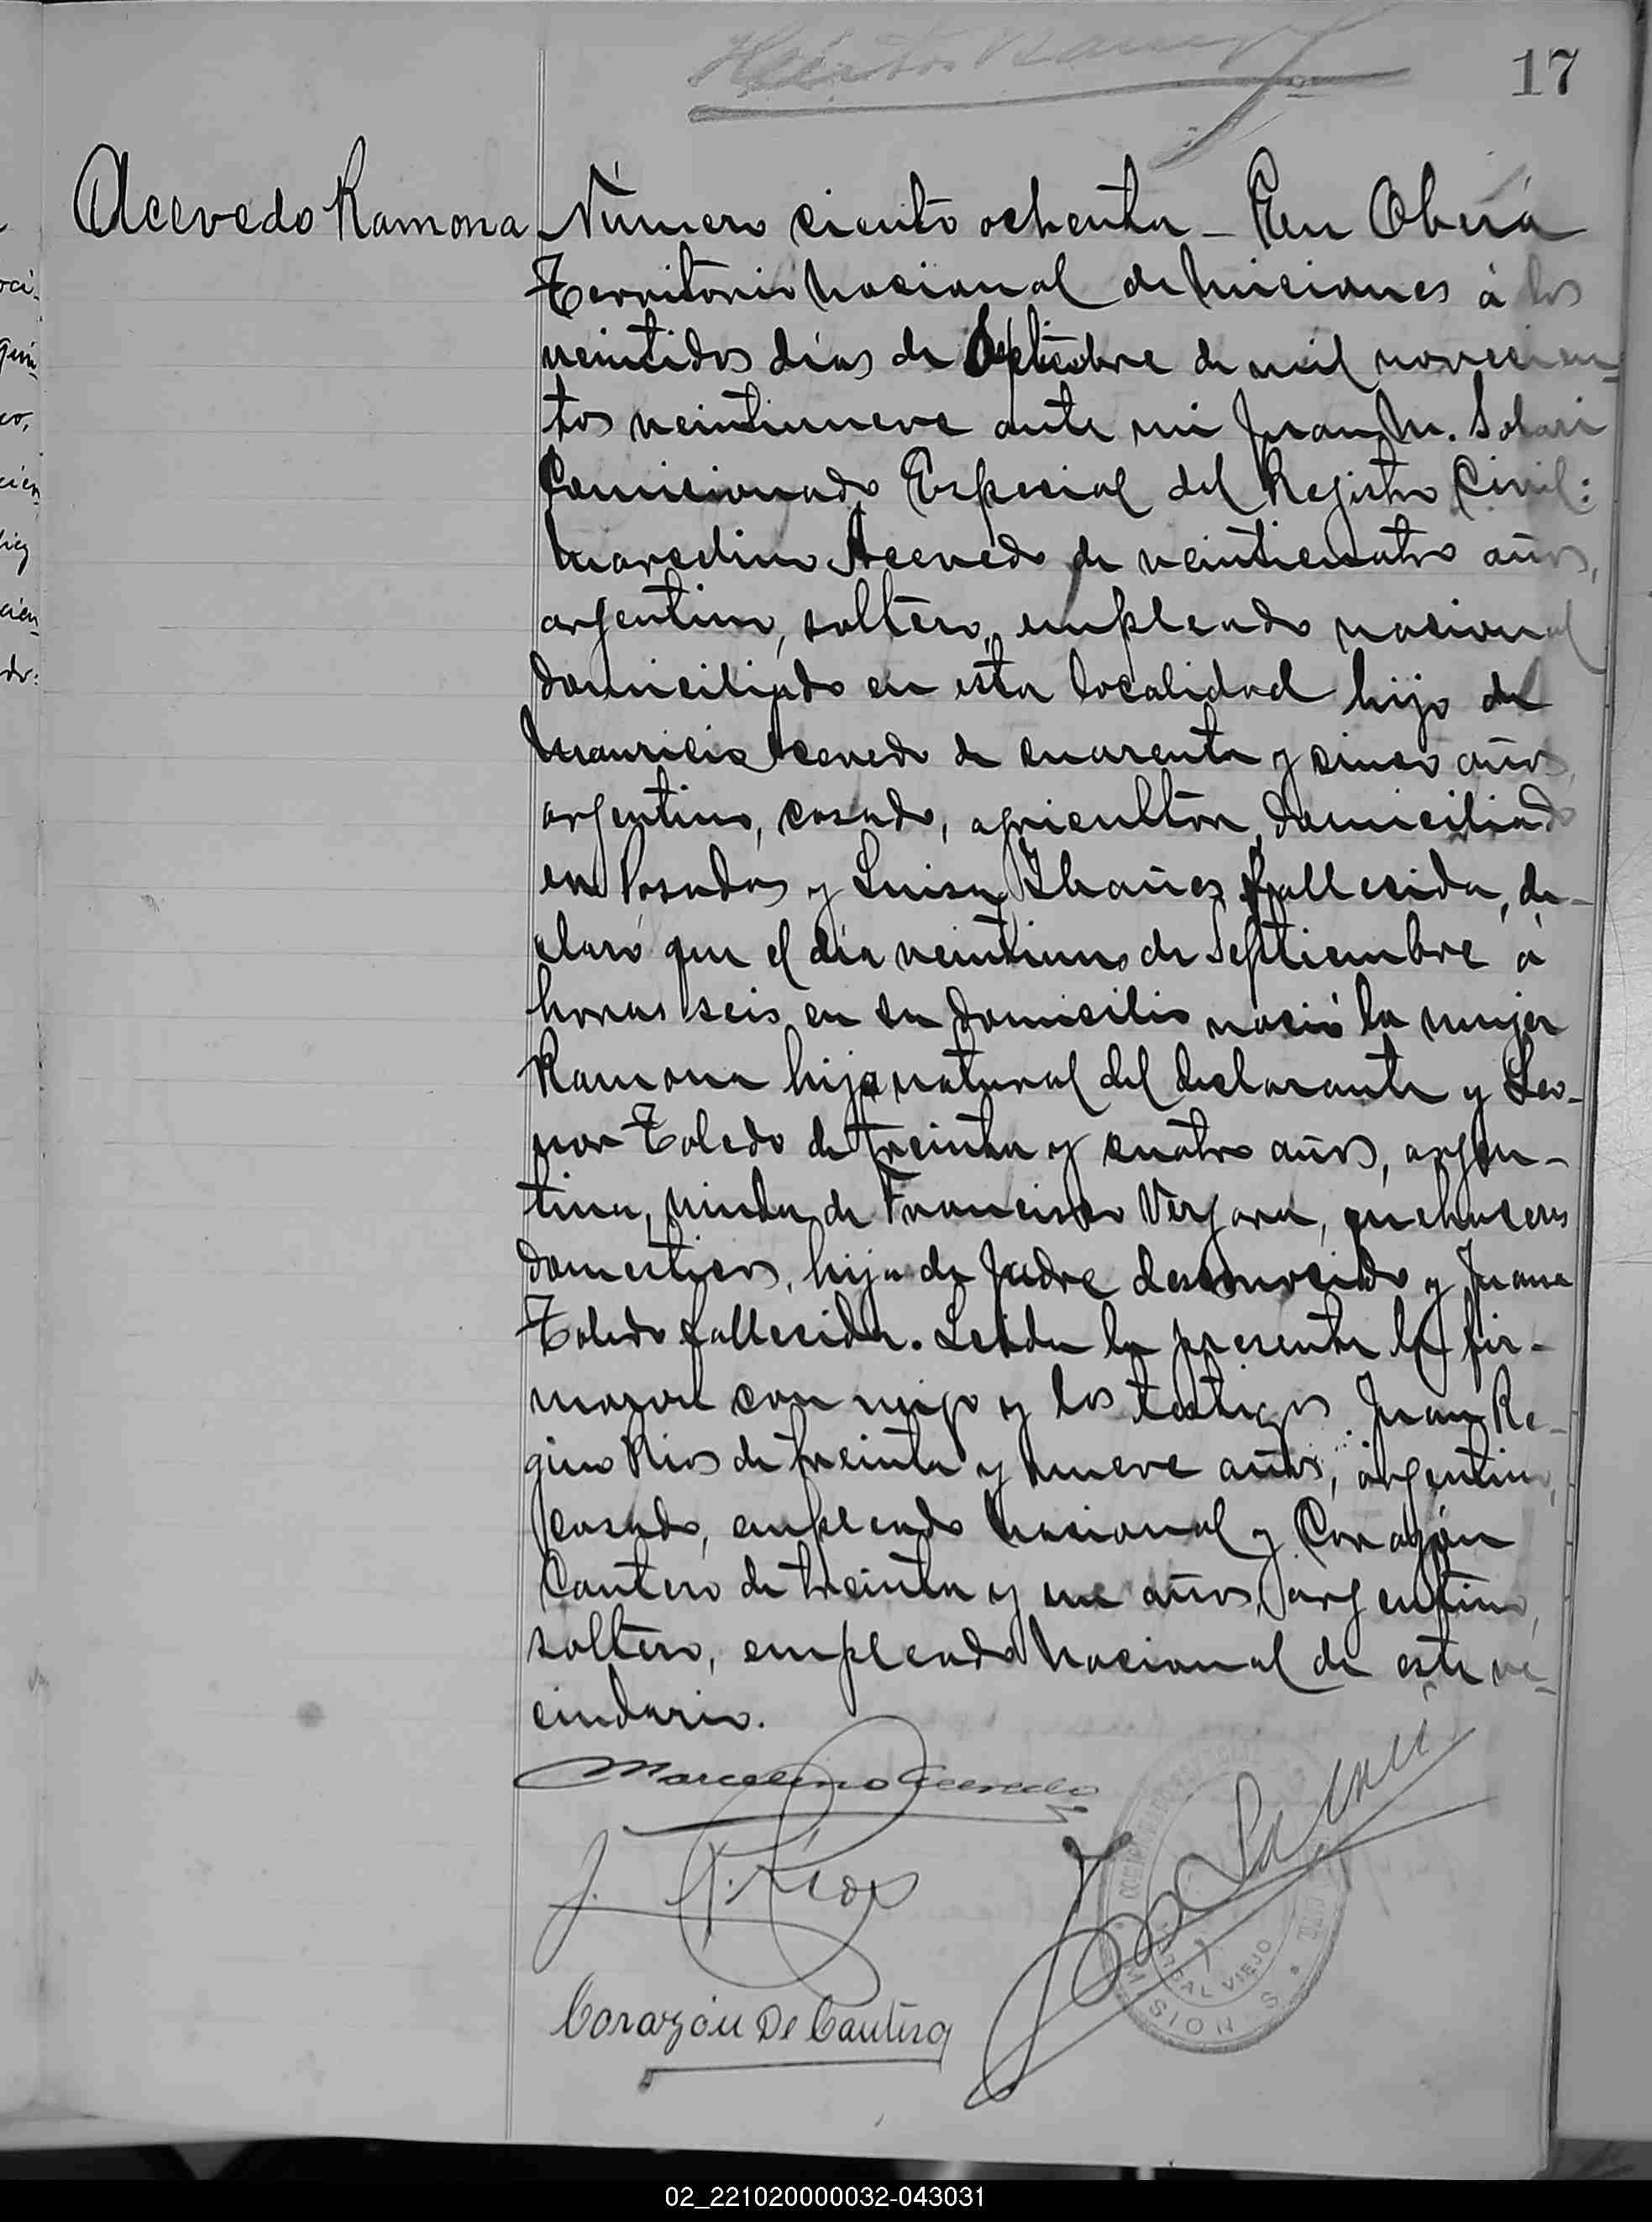 17
Acevedo Ramona
Número ciento ochenta - En Oberá
Territorio Nacional de Misiones á los
veintidos dias de Septiembre de mil novecien-
tos veintinueve ante mi Juan M. Solari
Comisionado Especial del Registro Civil:
Marcelino Acevedo de veinticuatro años,
argentino, soltero, empleado nacional
domiciliado en esta localidad hijo de
Mauricio Acevedo de cuarenta y cinco años,
argentino, casado, agricultor, domiciliado
en Posadas y Luisa Ibañez fallecida, de-
claró que el día veintiuno de Septiembre á
horas seis en su domicilio nació la mujer
Ramona hija natural del declarante y Leo-
nor Toledo de treinta y cuatro años, argen-
tina, viuda de Francisco Vergara, quehaceres
domesticos, hija de padre desconocido y Juana
Toledo fallecida. Leida la presente la fir-
maron con migo y los testigos: Juan Re-
gino Rios de treinta y nueve años, argentino,
casado, empleado Nacional y Corazón
Cantero de treinta y un años, argentino,
soltero, empleado Nacional de este ve-
cindario.
Marcelino Acevedo
J. R. Rios
Corazón De Cantero
MISIONES
VIEJO
02_221020000032-043031